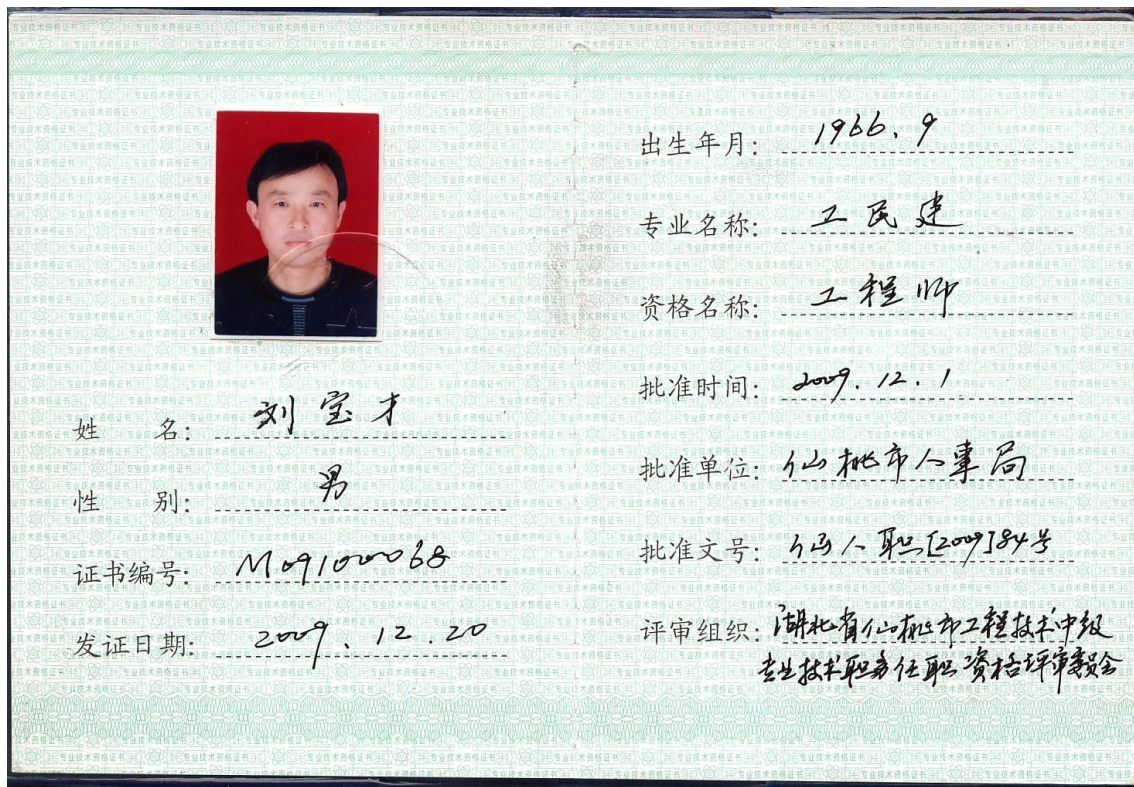 姓 名: 刘宝才
性 别: 男
证书编号: M09100068
发证日期: 2009.12.20
出生年月: 1966.9
专业名称: 工民建
资格名称: 工程师
批准时间: 2009.12.1
批准单位: 仙桃市人事局
批准文号: 仙人职[2009]84号
评审组织: 湖北省仙桃市工程技术中级
专业技术职务任职资格评审委员会